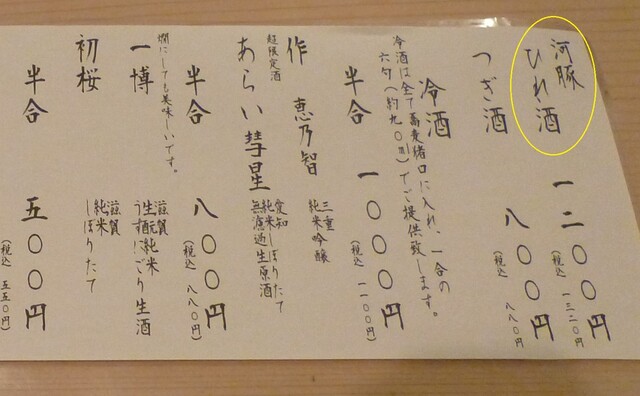 河豚
ひれ酒 一二〇〇円
(税込 一三二〇円)
つぎ酒 八〇〇円
(税込 八八〇円)
冷酒
冷酒は全て蕎麦猪口に入れ、一合の
六勺(約九〇ml)でご提供致します。
半合 一〇〇〇円
(税込 一一〇〇円)
作 恵乃智
三重
純米吟醸
超限定酒
あらい彗星
愛知
純米しぼりたて
無濾過生原酒
半合 八〇〇円
(税込 八八〇円)
燗にしても美味しいです。
一博
滋賀
生酛純米
うすにごり生酒
初桜
滋賀
純米
しぼりたて
半合 五〇〇円
(税込 五五〇円)